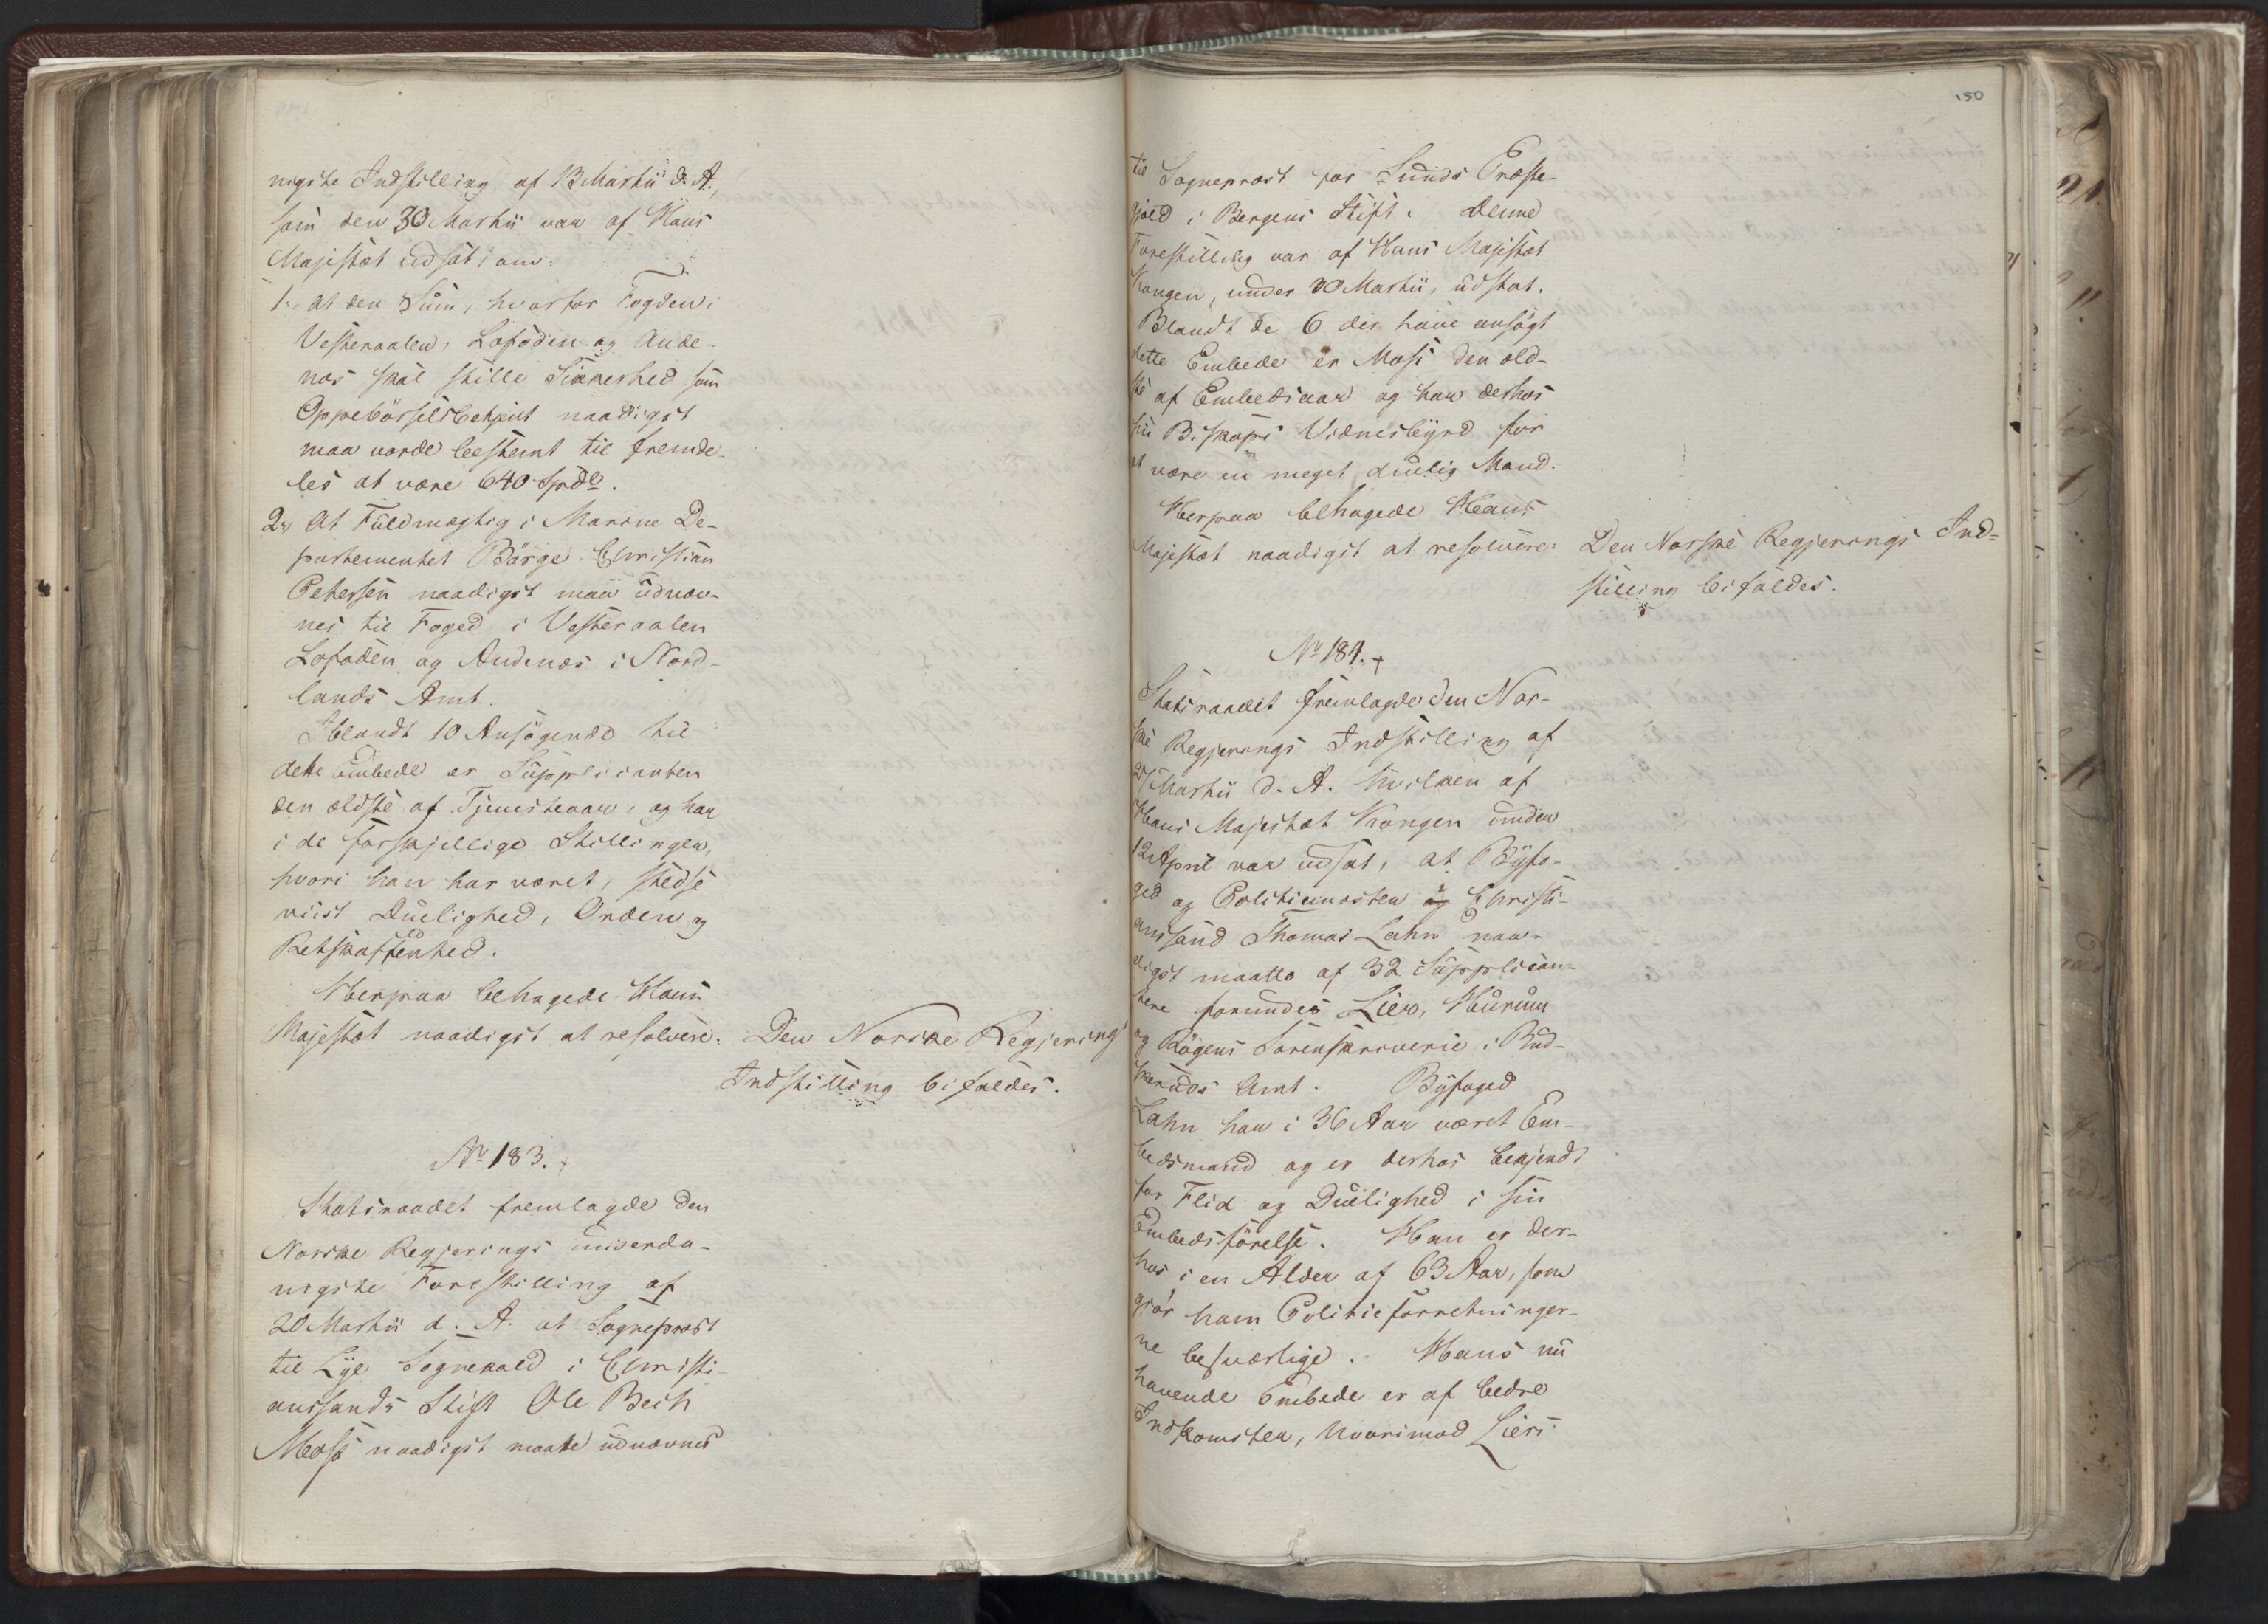 nigste Indstilling af 13 Martii d. A.,
som den 30 Martii var af Hans
Majestæt udsat, om:
1., at den Sum, hvorfor Fogden i
Vesteraalen, Lofoden og Ande-
næs skal stille Sikkerhed som
Oppebörselsbetjent naadigst
maa vorde bestemt til fremde-
les at være 640 Spdlr.
2., At Fuldmægtig i Marine De-
partementet Börge Christian
Petersen naadigst maa udnæv-
nes til Foged i Vesteraalen
Lofoden og Andenæs i Nord-
lands Amt.
Iblandt 10 Ansögende til
dette Embede er Supplicanten
den ældste af Tjenesteaar, og har
i de forskjellige Stillinger,
hvori han har været, stedse
viist Duelighed, Orden og
Retskaffenhed.
Herpaa behagede Hans
Majestæt naadigst at resolvere:
Den Norske Regjerings
Indstilling bifaldes.
No 183.
Statsraadet fremlagde den
Norske Regjerings underda-
nigste Forestilling af
20 Martii d. A. at Sognepræst
til Lye Sognekald i Christi-
anssands Stift Ole Bech
Mosse naadigst maatte udnævnes
150
til Sognepræst for Lunds Præste-
gjæld i Bergens Stift. Denne
Forestilling var af Hans Majestæt
Kongen, under 30 Martii, udsat.
Blandt de 6 der have ansögt
dette Embede er Mosse den æld-
ste af Embedsaar og har derhos
sin Biskops Vidnesbyrd for
at være en meget duelig Mand.
Herpaa behagede Hans
Majestæt naadigst at resolvere:
Den Norske Regjerings Ind-
stilling bifaldes.
No 184.
Statsraadet fremlagde den Nor-
ske Regjerings Indstilling af
27 Martii d. A. hvilken af
Hans Majestæt Kongen under
12 April var udsat, at Byfo-
ged og Politiemester i Christi-
anssand Thomas Lahn naa-
digst maatte af 32 Supplican-
tere forundes Liers, Hurum
og Rögens Sorenskriverie i Bud-
skeruds Amt. Byfoged
Lahn har i 36 Aar været Em-
bedsmand og er derhos bekjendt
for Flid og Duelighed i sin
Embedsförelse. Han er der-
hos i en Alder af 63 Aar, som
gjör ham Politieforretninger-
ne besværlige. Hans nu
havende Embede er af bedre
Indkomster, hvorimod Liers